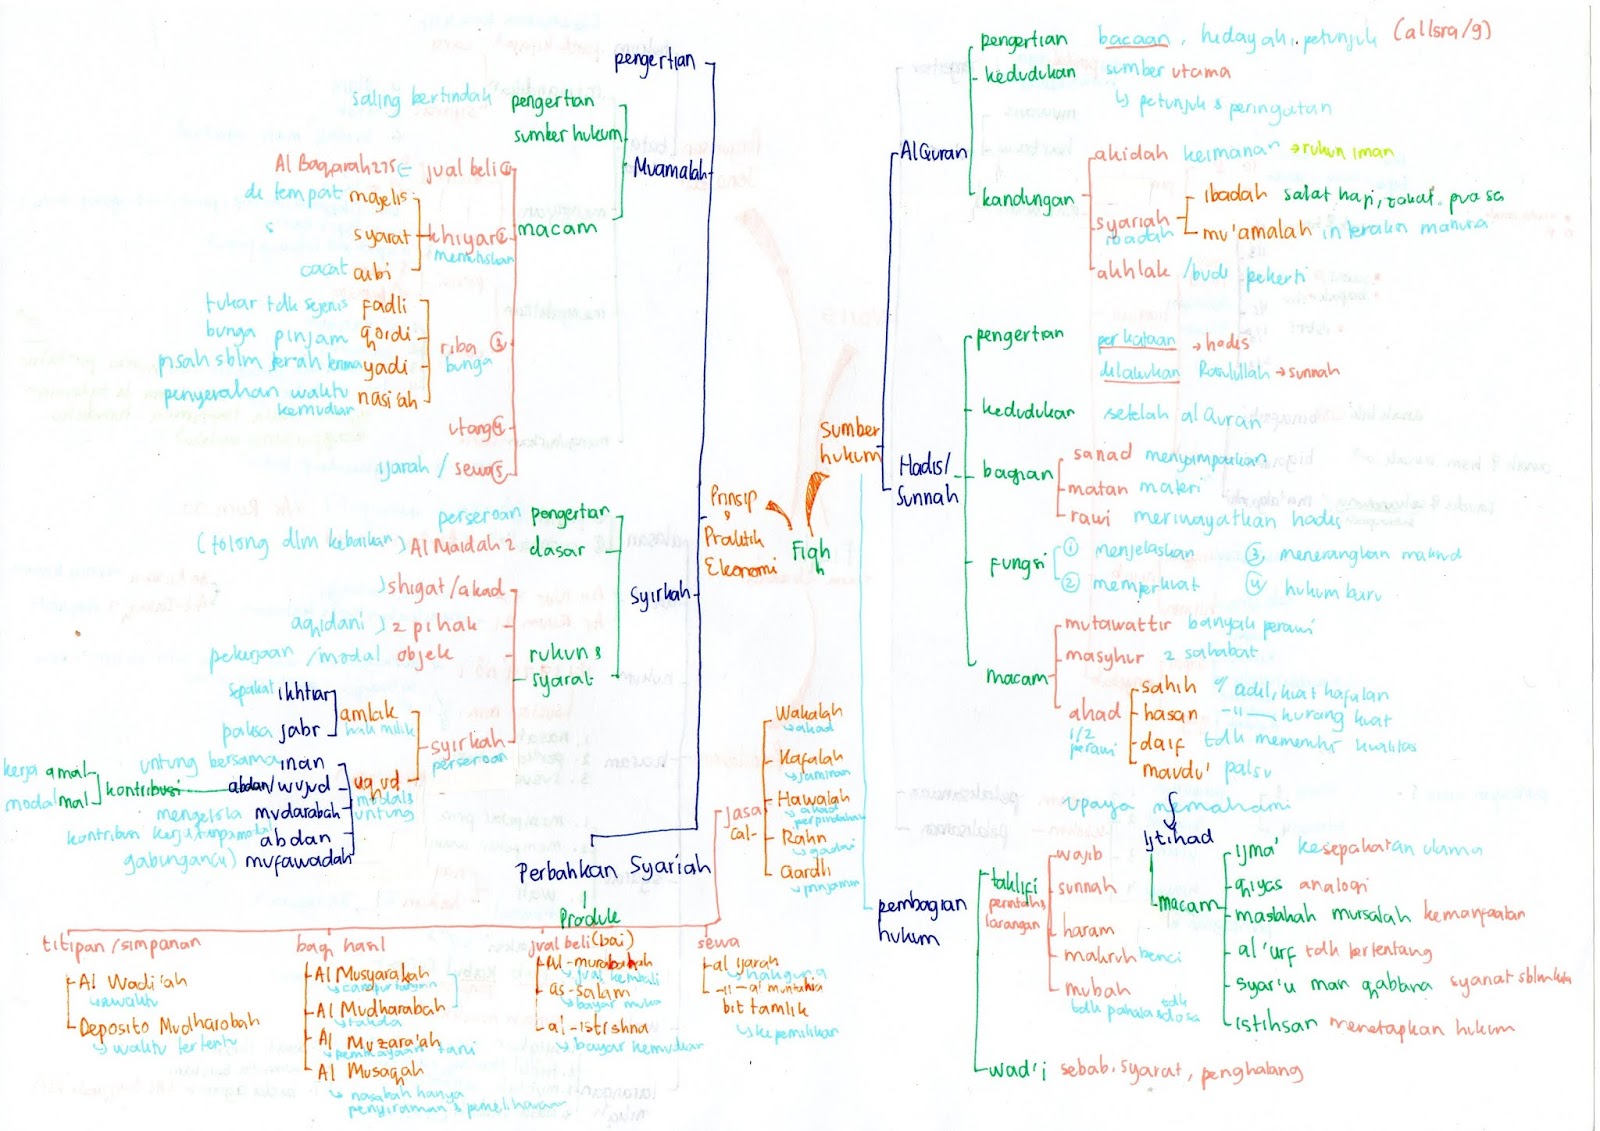 Fiqh
Sumber
hukum
Al Quran
pengertian bacaan, hudayah, petunjuk (al Isra/9)
kedudukan sumber utama
↳ petunjuk & peringatan
kandungan
akidah keimanan → rukun iman
syariah
ibadah
ibadah salat haji, zakat, puasa
mu'amalah interaksi manusia
akhlak /budi pekerti
Hadis/
Sunnah
pengertian perkataan → hadis
dilakukan Rasulullah → sunnah
kedudukan setelah al Quran
bagian
sanad menyampaikan
matan materi
rawi meriwayatkan hadis
fungsi
① menjelaskan ③ menerangkan maksud
② memperkuat ④ hukum baru
macam
mutawattir banyak perawi
masyhur 2 sahabat
ahad
1/2
perawi
sahih adil, kuat hafalan
hasan -11- kurang kuat
daif tdk memenuhi kualitas
maudu' palsu
upaya memahami
Ijtihad
macam
ijma' kesepakatan ulama
qhiyas analogi
maslahah mursalah kemanfaatan
al 'urf tdk bertentang
syar'u man qablana
istihsan menetapkan hukum
pembagian
hukum
taklifi
perintah &
larangan
wajib
sunnah
haram
makruh benci
mubah
tdk pahala & tdk dosa
wad'i sebab, syarat, penghalang
Prinsip
&
Praktik
Ekonomi
pengertian
Muamalah
saling bertindak pengertian
sumber hukum
macam
Al Baqarah 275 jual beli ①
khiyar ②
memutuskan
di tempat majelis
s syarat
cacat aibi
riba ③
bunga
tukar tdk sejenis fadli
bunga pinjam qhordi
pisah sblm serah terima yadi
penyerahan waktu
kemudian
nasi'ah
utang ④
ijarah / sewa ⑤
Syirkah
perseroan pengertian
(tolong dlm kebaikan) Al Maidah 2 dasar
rukun &
syarat
shigat/akad
aqhidani 2 pihak
pekerjaan /modal objek
syirkah
perseroan
amlak
hak milik
sepakat ikhtiar
paksa jabr
uqhud
modal &
untung
untung bersama inan
kerja amal
modal mal
kontribusi abdan/wujud
mengelola mudarabah
kontribusi kerja tanpa modal abdan
gabungan(u) mufawadah
Perbahkan Syariah
Produk
titipan /simpanan
Al Wadi'ah
↳ sewaktu
Deposito Mudharobah
↳ waktu tertentu
bagi hasil
Al Musyarakah
Al Mudharabah
Al Muzara'ah
Al Musaqah
↳ nasabah hanya
penyiraman & pemeliharaan
jual beli (bai)
Al-murabahah
↳ jual kembali
as-salam
↳ bayar muka
al-istishna
↳ bayar kemudian
sewa
al ijarah
↳ hak guna
-11- al muntahia
bit tamlik
↳ kepemilikan
jasa
Wakalah
↳ akad
Kafalah
↳ jaminan
Hawalah
↳ akad
perpindahan
Rahn
↳ gadai
Qardh
↳ pinjaman